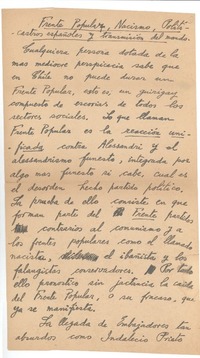 Frente Popular, Nacismo, Politi-
castros españoles y transmisión del mando.
Cualquiera persona dotada de la
mas mediocre perspicacia sabe que
en Chile no puede durar un
Frente Popular, esto es, un guirigay
compuesto de escorias de todos los
sectores sociales. Lo que llaman
Frente Popular es la reacción uni-
ficada contra Alessandri y el
alessandrismo funesto, integrada por
algo mas funesto si cabe, cual es
el desorden hecho partido político.
La prueba de ello consiste en que
forman parte del Frente partidos
contrarios al comunismo y a
los frentes populares como el llamado
nacista, el ibañista y los
falangistas conservadores. Por todo
ello pronostico sin jactancia la caida
del Frente Popular, o su fracaso, que
ya se manifiesta.
La llegada de Embajadores tan
absurdos como Indalecio Prieto